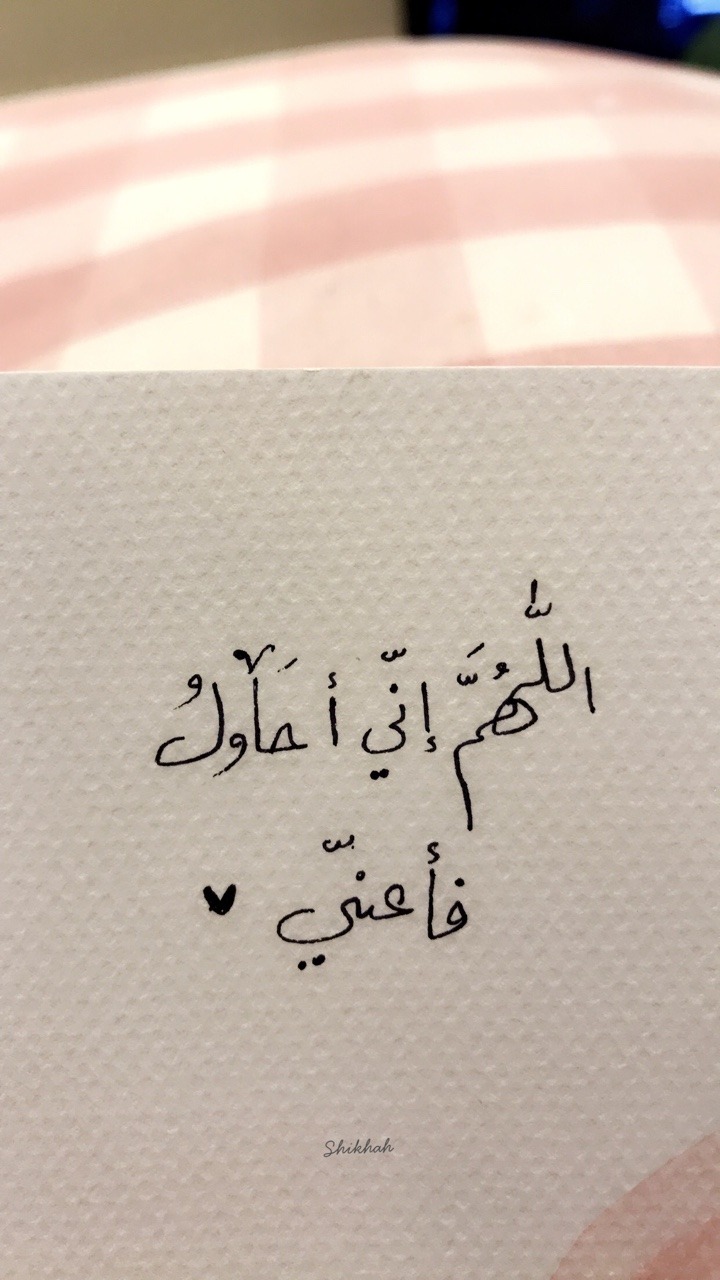 اللّٰهُمَّ إنّي أحَاولُ
فأعنّي ♥
Shikhah